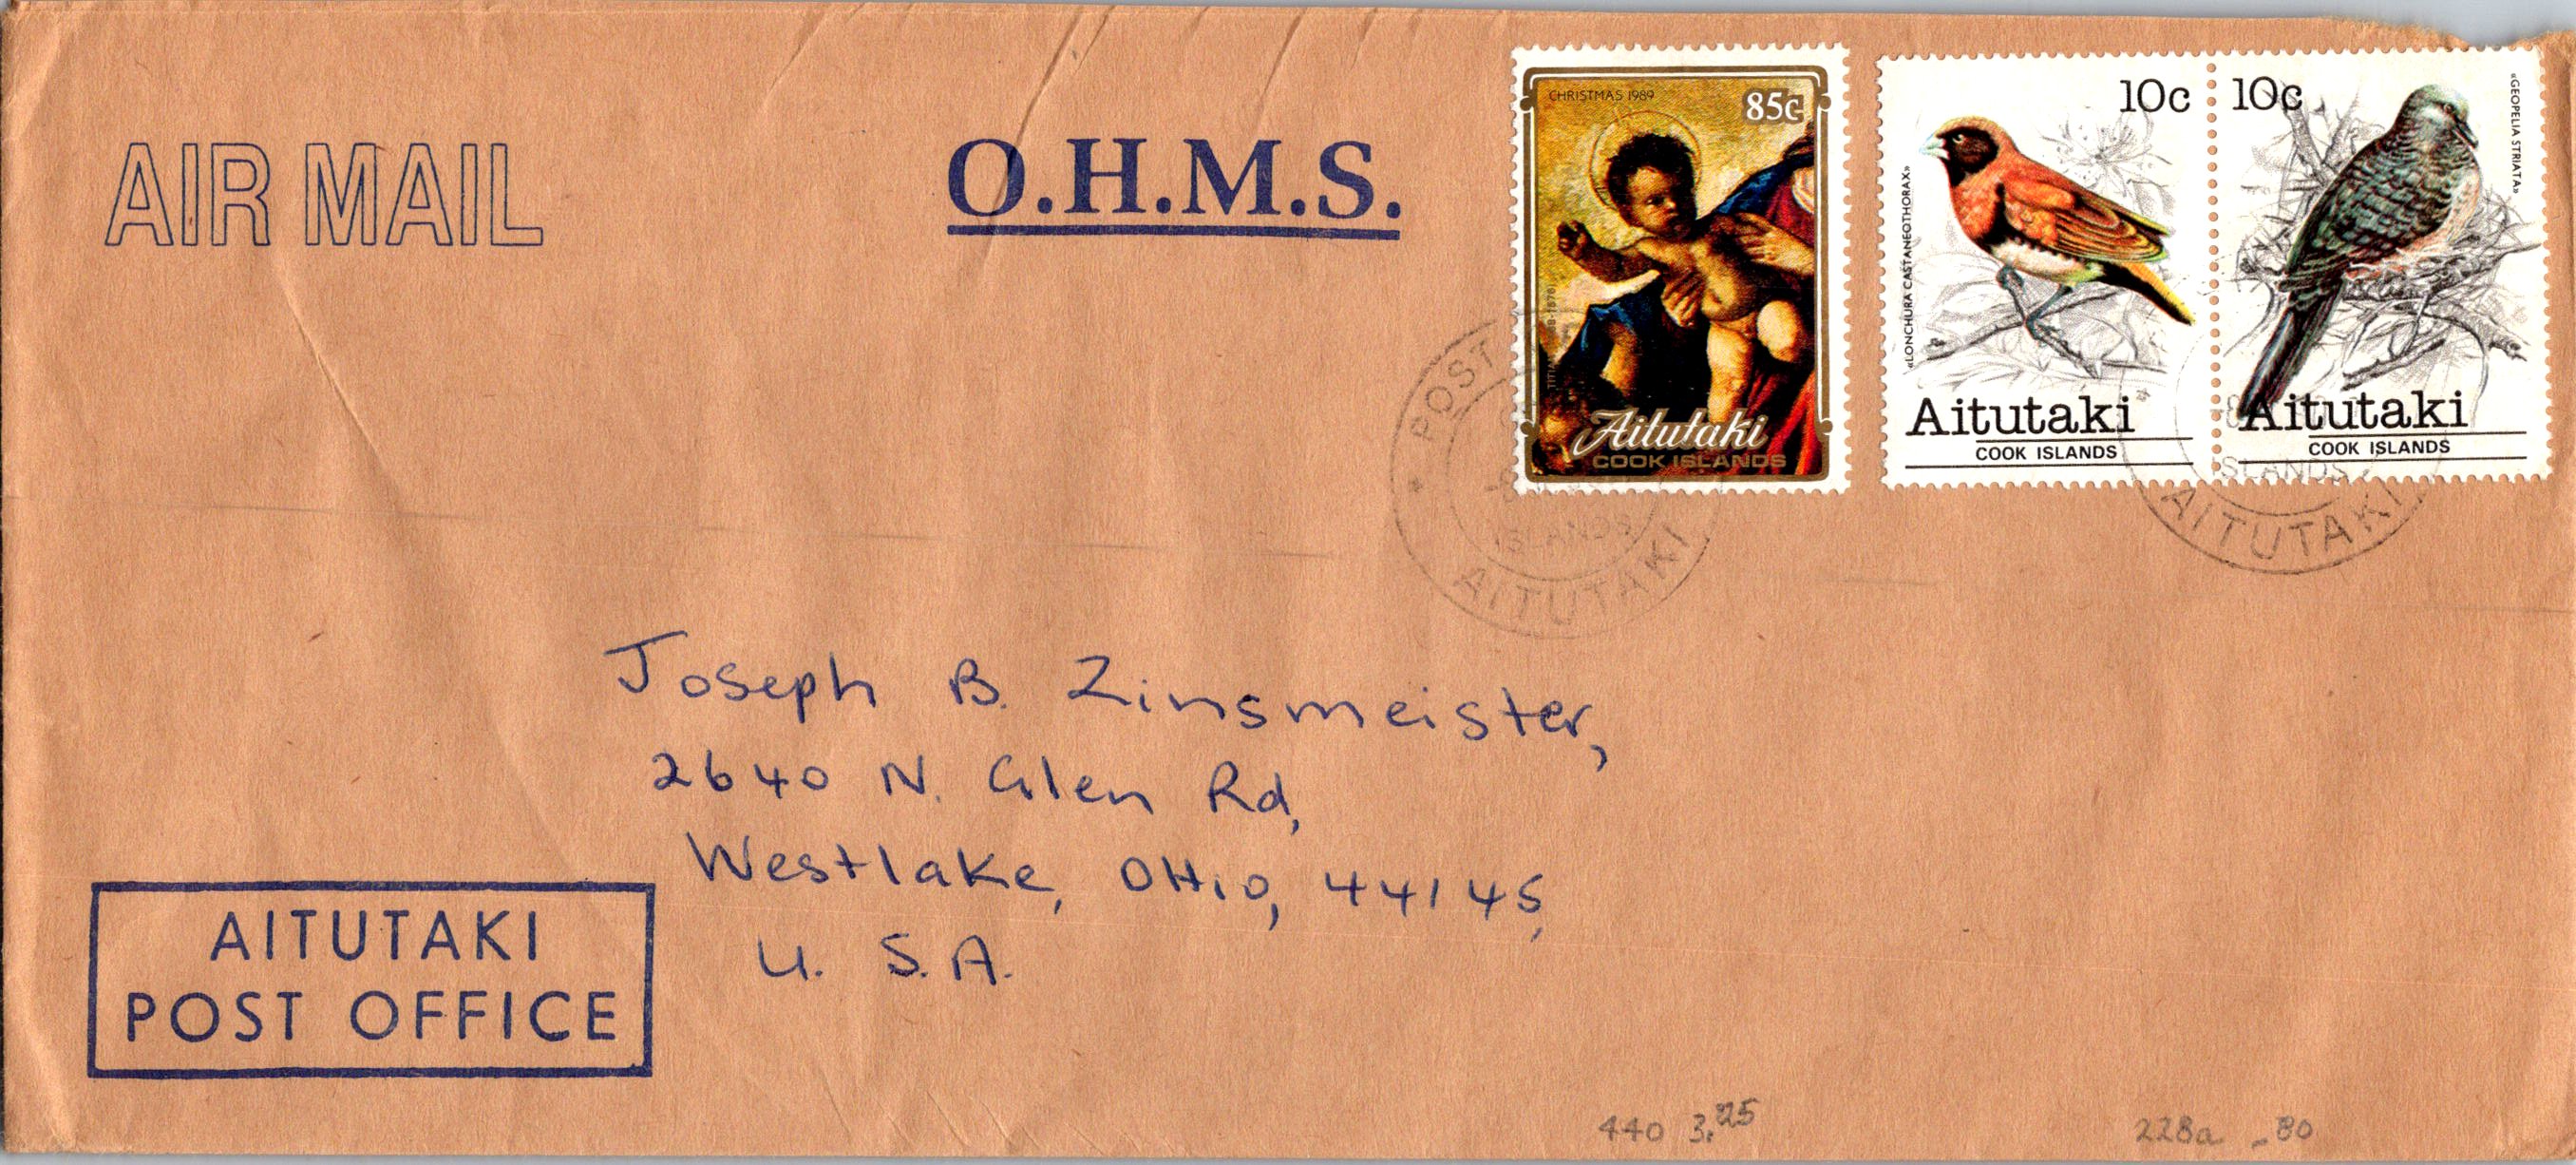 AIR MAIL
O.H.M.S.
CHRISTMAS 1989
85c
Aitutaki
COOK ISLANDS
10c
«LONCHURA CASTANEOTHORAX»
Aitutaki
COOK ISLANDS
10c
«GEOPELIA STRIATA»
Aitutaki
COOK ISLANDS
POST
ISLANDS
AITUTAKI
ISLANDS
AITUTAKI
Joseph B. Zinsmeister,
2640 N. Glen Rd,
Westlake, OHio, 44145,
U. S.A.
AITUTAKI
POST OFFICE
440 3.25
228a -80